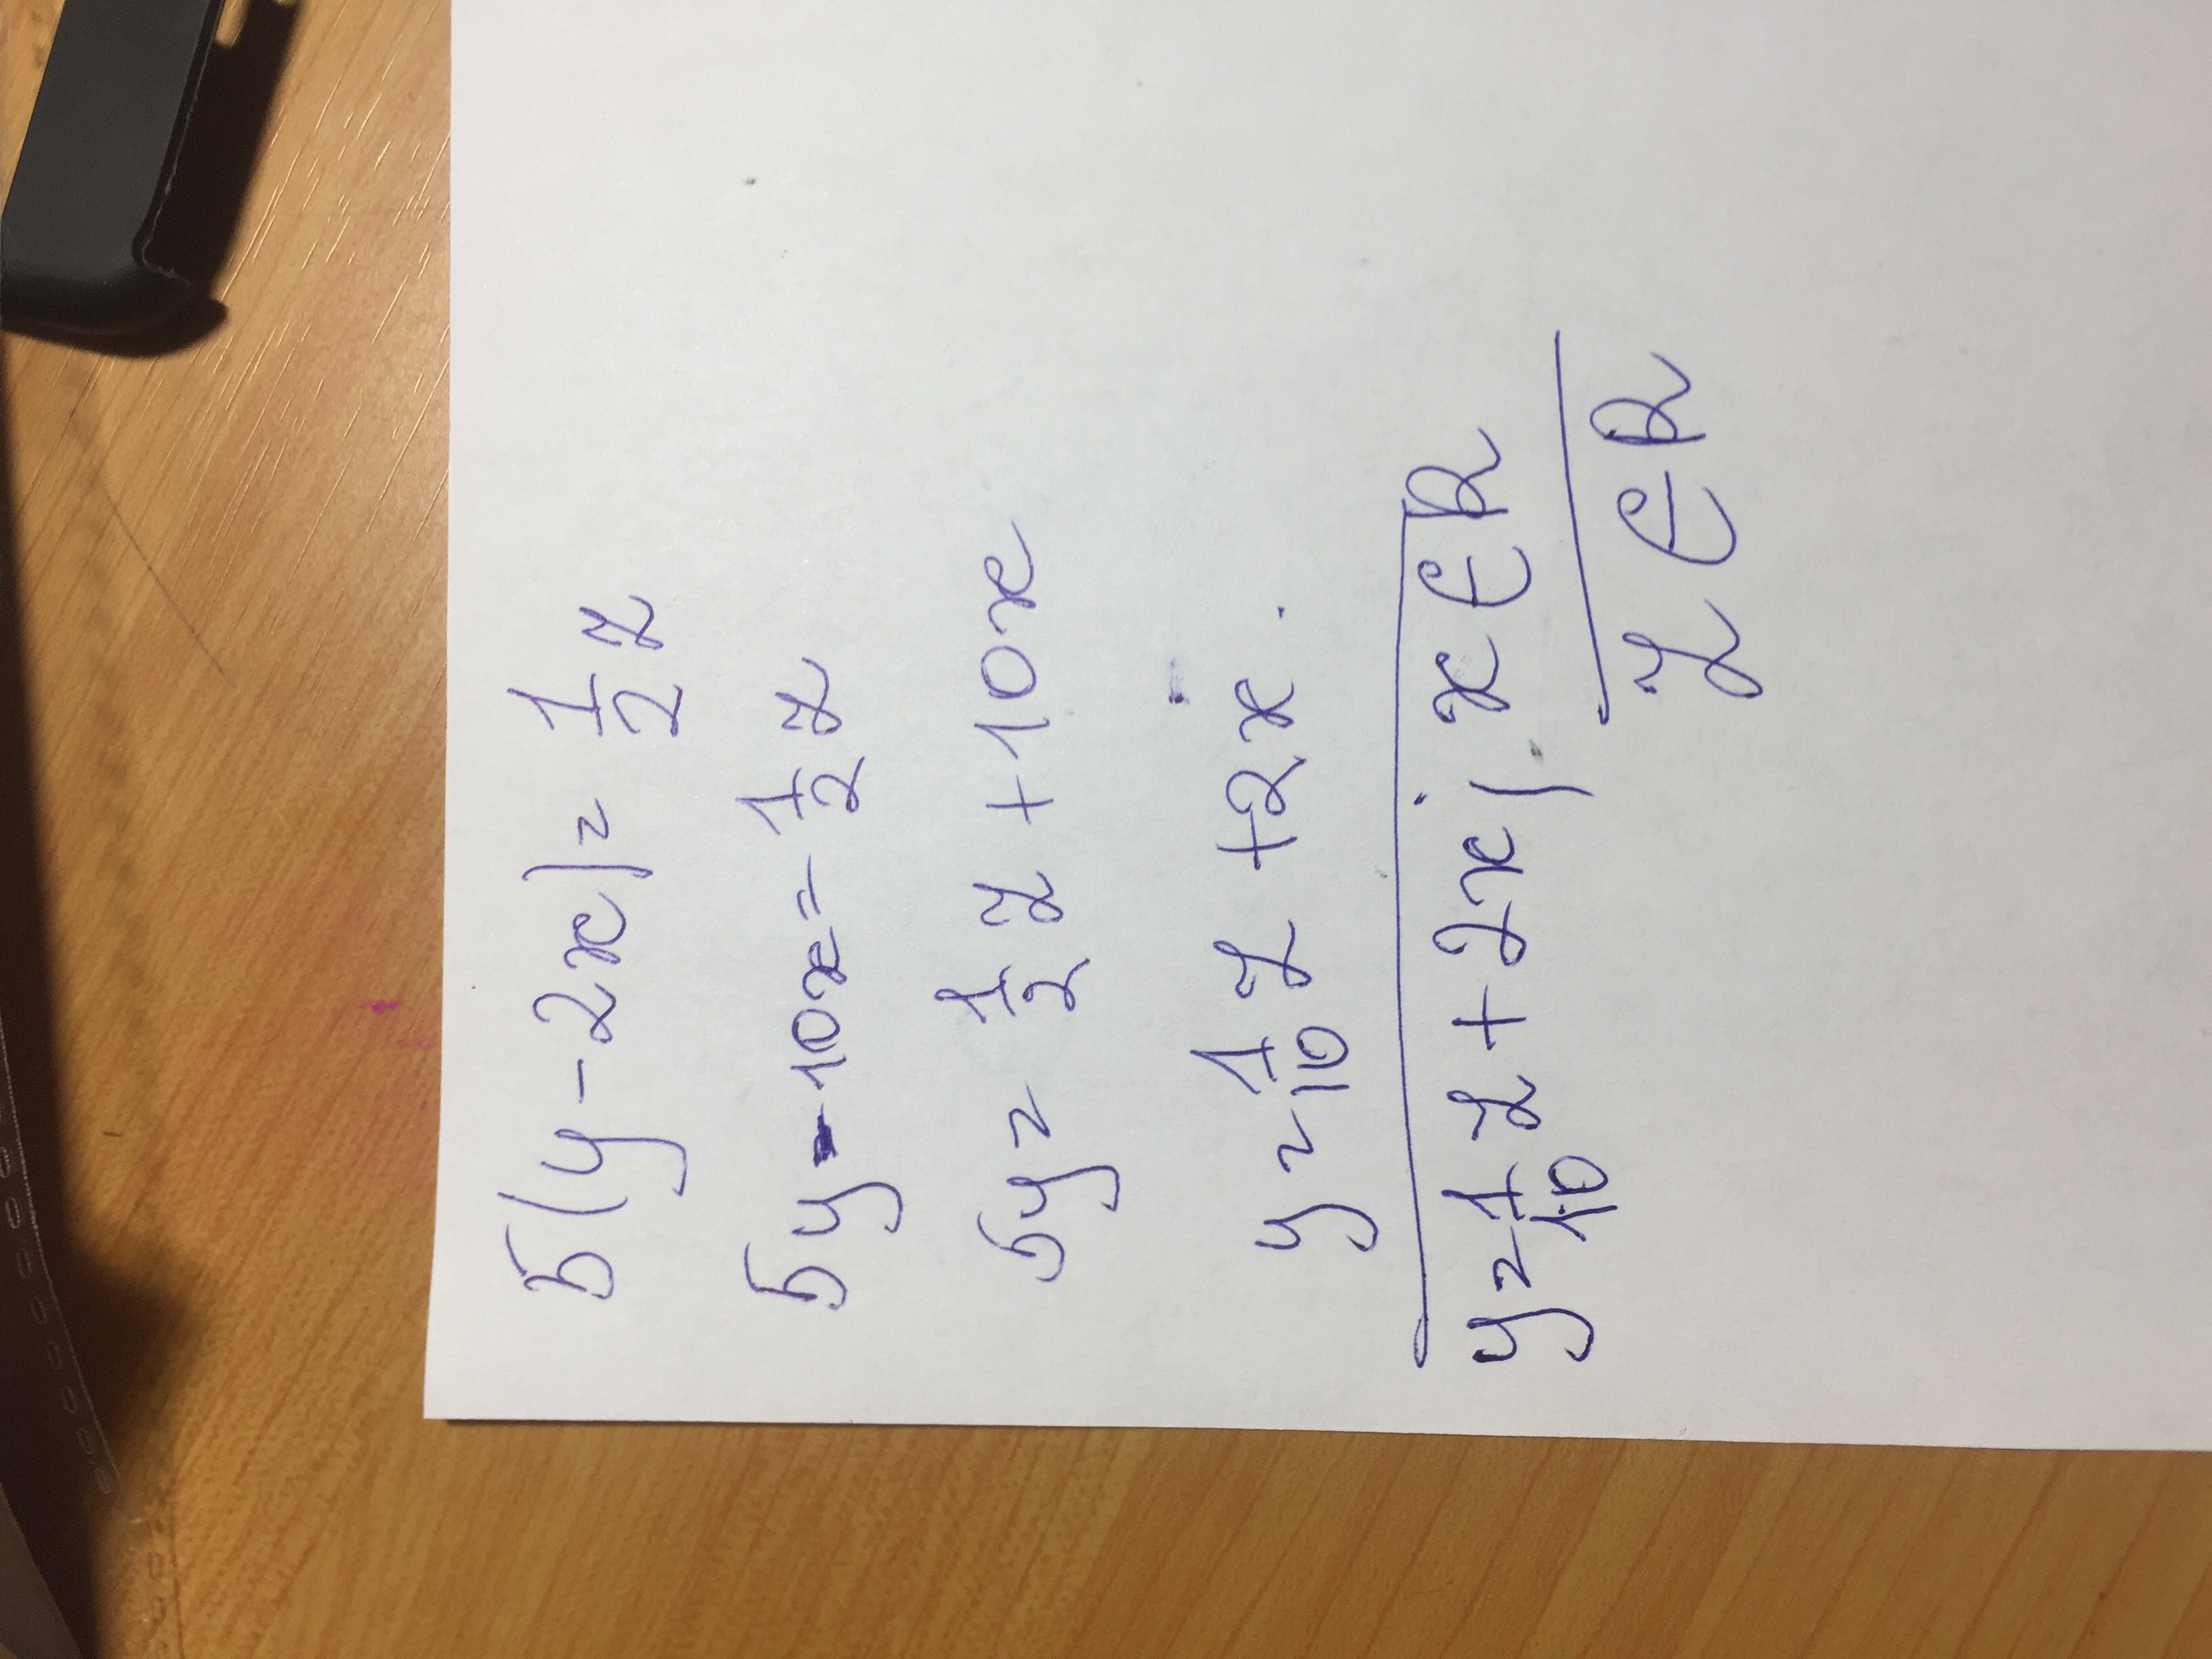 5(y-2x)=1/2 z
5y-10x=1/2 z
5y=1/2 z+10x
y=1/10 z+2x.
y=1/10 z+2x, x∈R
z∈R